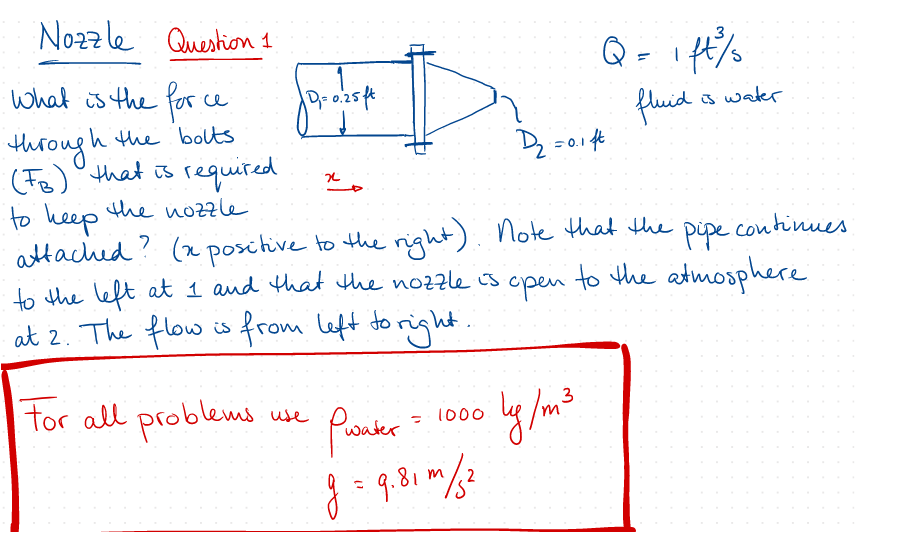 Nozzle Question 1
Q = 1 ft³/s
fluid is water
D₁ = 0.25 ft
D₂ = 0.1 ft
x
What is the force
through the bolts
(F_B) that is required
to keep the nozzle
attached? (x positive to the right). Note that the pipe continues
to the left at 1 and that the nozzle is open to the atmosphere
at 2. The flow is from left to right.
For all problems use ρwater = 1000 kg/m³
g = 9.81 m/s²